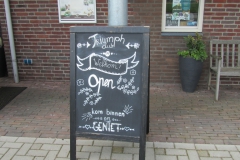 Triumph
Welkom!
Open
kom binnen
en
GENIET